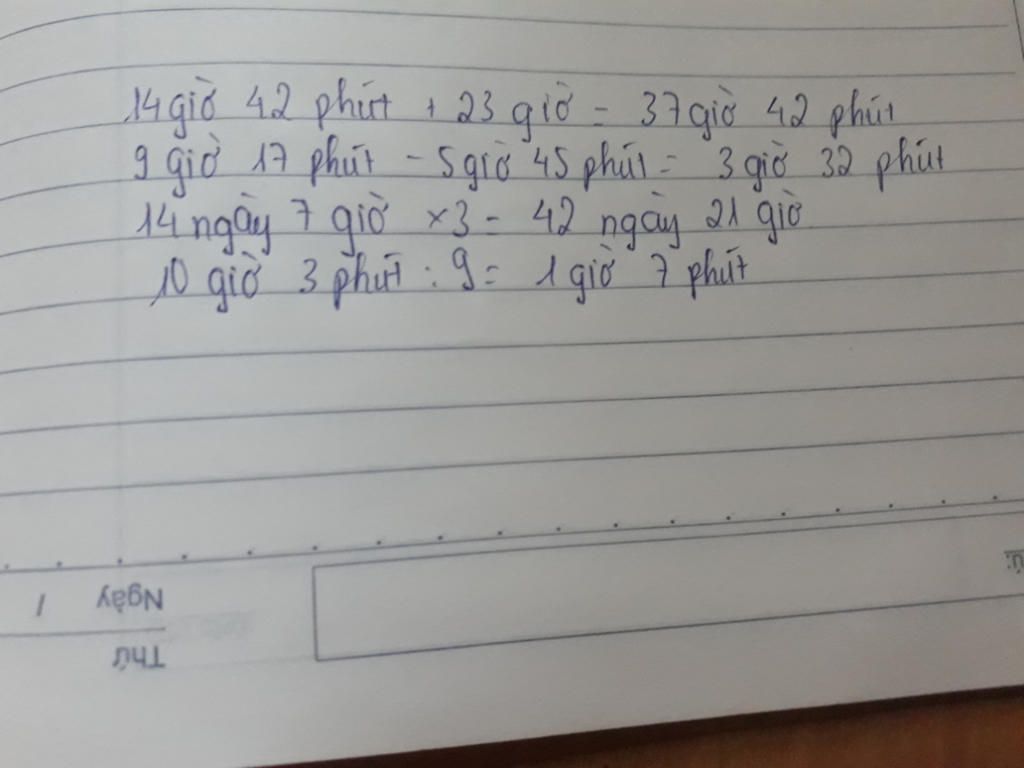 14 giờ 42 phút + 23 giờ = 37 giờ 42 phút
9 giờ 17 phút - 5 giờ 45 phút = 3 giờ 32 phút
14 ngày 7 giờ × 3 = 42 ngày 21 giờ
10 giờ 3 phút : 9 = 1 giờ 7 phút
Ngày /
Thứ